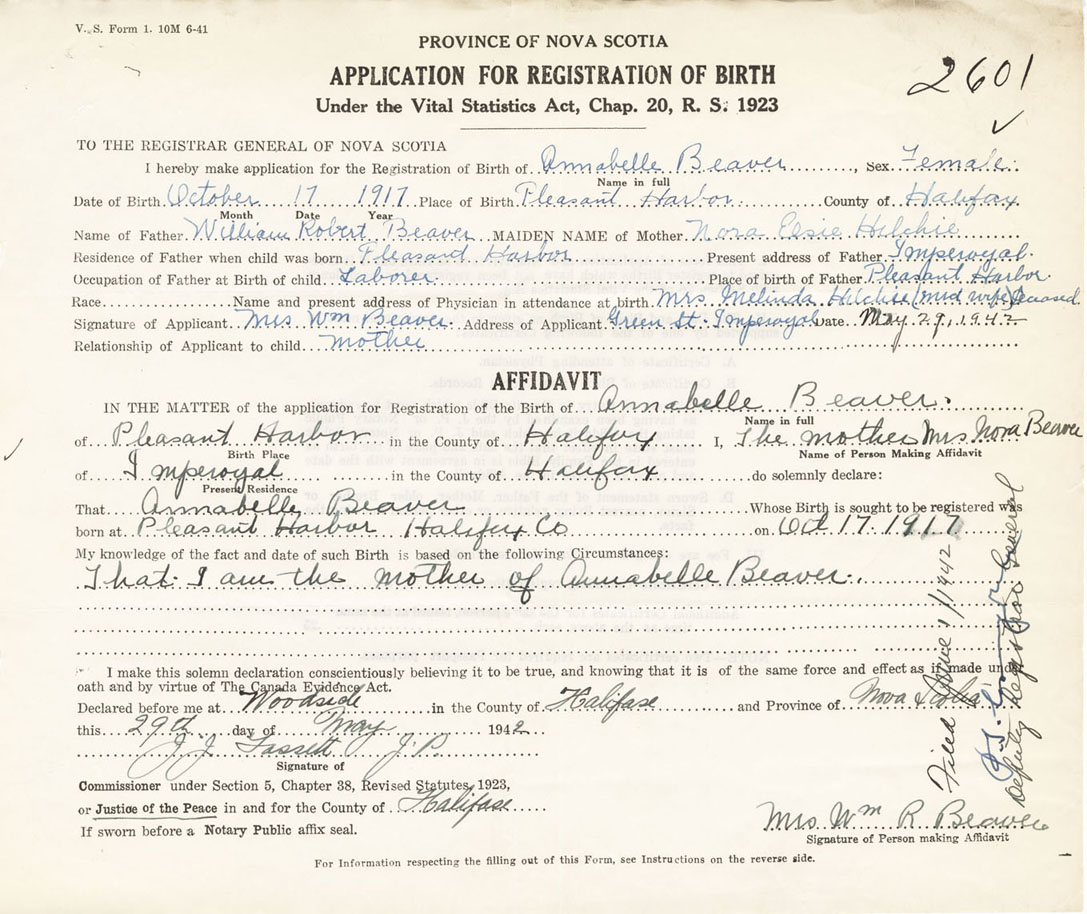 V. S. Form 1. 10M 6-41
PROVINCE OF NOVA SCOTIA
APPLICATION FOR REGISTRATION OF BIRTH
2601
Under the Vital Statistics Act, Chap. 20, R. S. 1923
TO THE REGISTRAR GENERAL OF NOVA SCOTIA
I hereby make application for the Registration of Birth of Annabelle Beaver, Sex Female
Name in full
Date of Birth October 17 1917 Place of Birth Pleasant Harbor County of Halifax
Month Date Year
Name of Father William Robert Beaver MAIDEN NAME of Mother Nora Elsie Hilchie
Residence of Father when child was born Pleasant Harbor Present address of Father Imperoyal
Occupation of Father at Birth of child Laborer Place of birth of Father Pleasant Harbor
Race Name and present address of Physician in attendance at birth Mrs. Melinda Hilchie (mid wife)
Signature of Applicant Mrs Wm Beaver Address of Applicant Green St. Imperoyal Date May 29, 1942
Relationship of Applicant to child mother
AFFIDAVIT
IN THE MATTER of the application for Registration of the Birth of Annabelle Beaver
Name in full
of Pleasant Harbor in the County of Halifax I, The mother Mrs Nora Beaver
Birth Place Name of Person Making Affidavit
of Imperoyal in the County of Halifax do solemnly declare:
Present Residence
That Annabelle Beaver Whose Birth is sought to be registered was
born at Pleasant Harbor Halifax Co on Oct 17. 1917
My knowledge of the fact and date of such Birth is based on the following Circumstances:
That I am the mother of Annabelle Beaver.
I make this solemn declaration conscientiously believing it to be true, and knowing that it is of the same force and effect as if made under
oath and by virtue of The Canada Evidence Act.
Declared before me at Woodside in the County of Halifax and Province of Nova Scotia
this 29th day of May 1942
J. P.
Signature of
Commissioner under Section 5, Chapter 38, Revised Statutes, 1923,
or Justice of the Peace in and for the County of Halifax
If sworn before a Notary Public affix seal.
Mrs. Wm R Beaver
Signature of Person making Affidavit
For Information respecting the filling out of this Form, see Instructions on the reverse side.
Filed June 1/1942
Deputy Registrar General